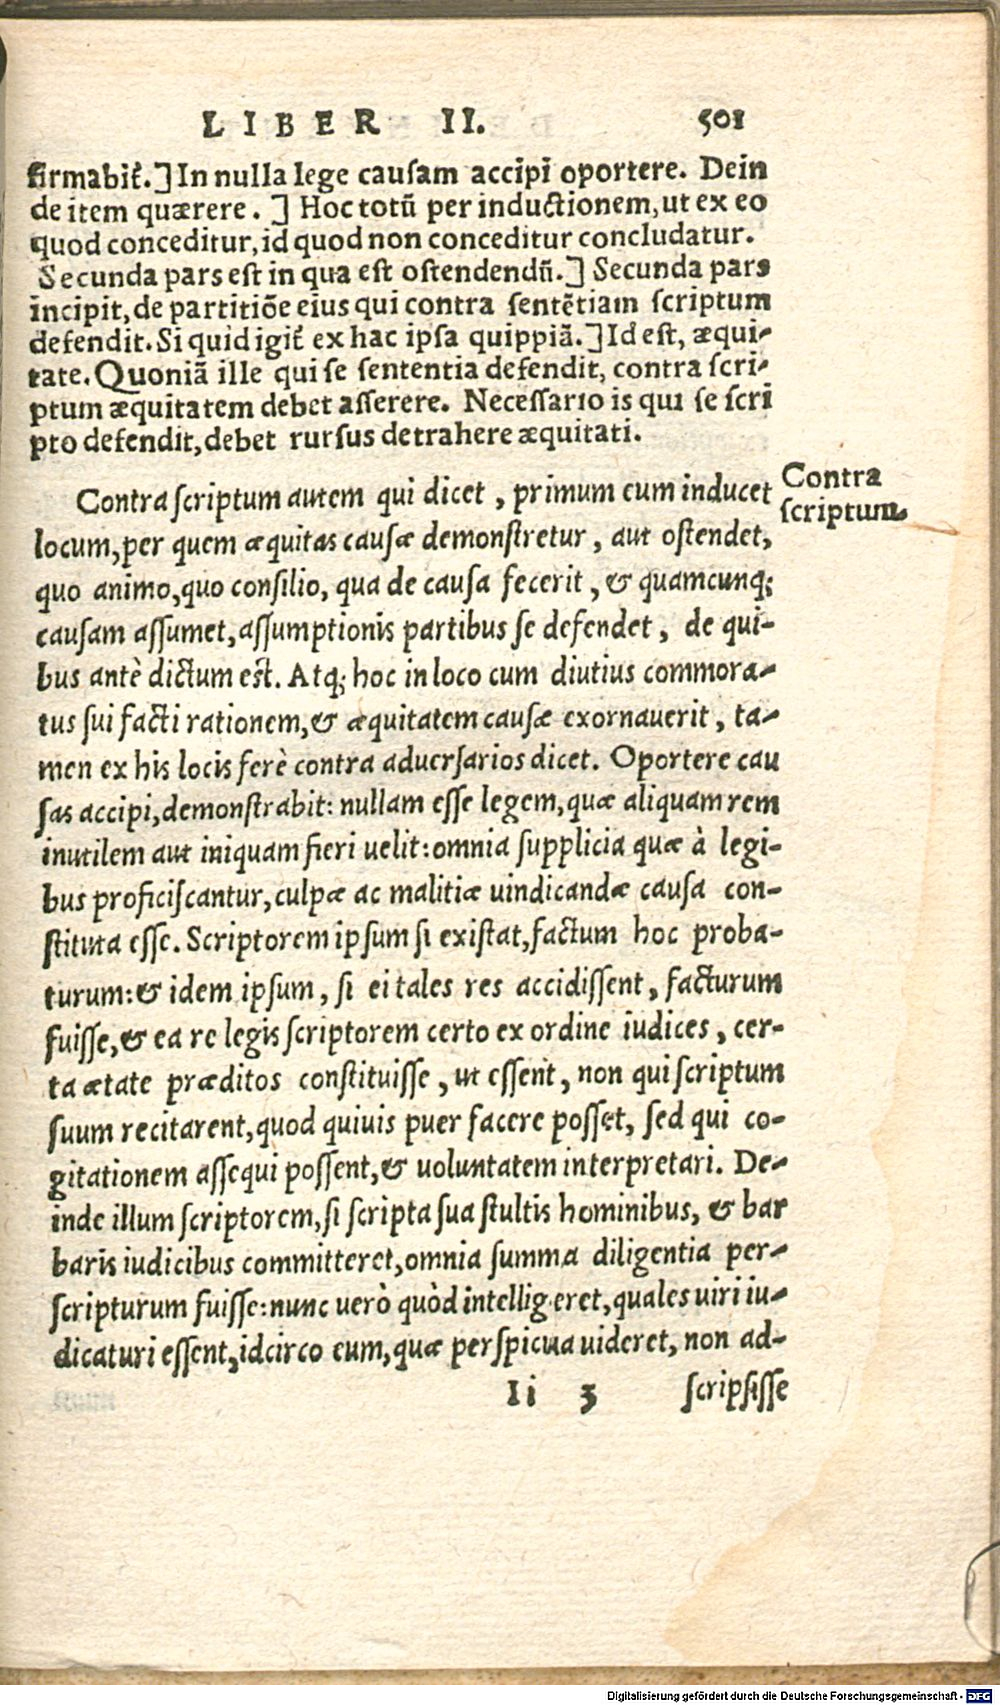 LIBER II. 501
firmabit̃.] In nulla lege causam accipi oportere. Dein
de item quærere. ] Hoc totũ per inductionem, ut ex eo
quod conceditur, id quod non conceditur concludatur.
Secunda pars est in qua est ostendendũ.] Secunda pars
incipit, de partitiõe eius qui contra sentẽtiam scriptum
defendit. Si quid igit̃ ex hac ipsa quippiã.] Id est, æqui-
tate. Quoniã ille qui se sententia defendit, contra scri-
ptum æquitatem debet asserere. Necessario is qui se scri
pto defendit, debet rursus detrahere æquitati.
Contra
scriptum.
Contra scriptum autem qui dicet, primum eum inducet
locum, per quem æquitas causæ demonstretur, aut ostendet,
quo animo, quo consilio, qua de causa fecerit, & quamcunq;
causam assumet, assumptionis partibus se defendet, de qui-
bus antè dictum est. Atq; hoc in loco cum diutius commora-
tus sui facti rationem, & æquitatem causæ exornauerit, ta-
men ex his locis ferè contra aduersarios dicet. Oportere cau
sas accipi, demonstrabit: nullam esse legem, quæ aliquam rem
inutilem aut iniquam fieri uelit: omnia supplicia quæ à legi-
bus proficiscantur, culpæ ac malitiæ uindicandæ causa con-
stituta esse. Scriptorem ipsum si existat, factum hoc proba-
turum: & idem ipsum, si ei tales res accidissent, facturum
fuisse, & ea re legis scriptorem certo ex ordine iudices, cer-
ta ætate præditos constituisse, ut essent, non qui scriptum
suum recitarent, quod quiuis puer facere posset, sed qui co-
gitationem assequi possent, & uoluntatem interpretari. De-
inde illum scriptorem, si scripta sua stultis hominibus, & bar
baris iudicibus committeret, omnia summa diligentia per-
scripturum fuisse: nunc uerò quòd intelligeret, quales uiri iu-
dicaturi essent, idcirco eum, quæ perspicua uideret, non ad-
Ii 3 scripsisse
Digitalisierung gefördert durch die Deutsche Forschungsgemeinschaft - DFG